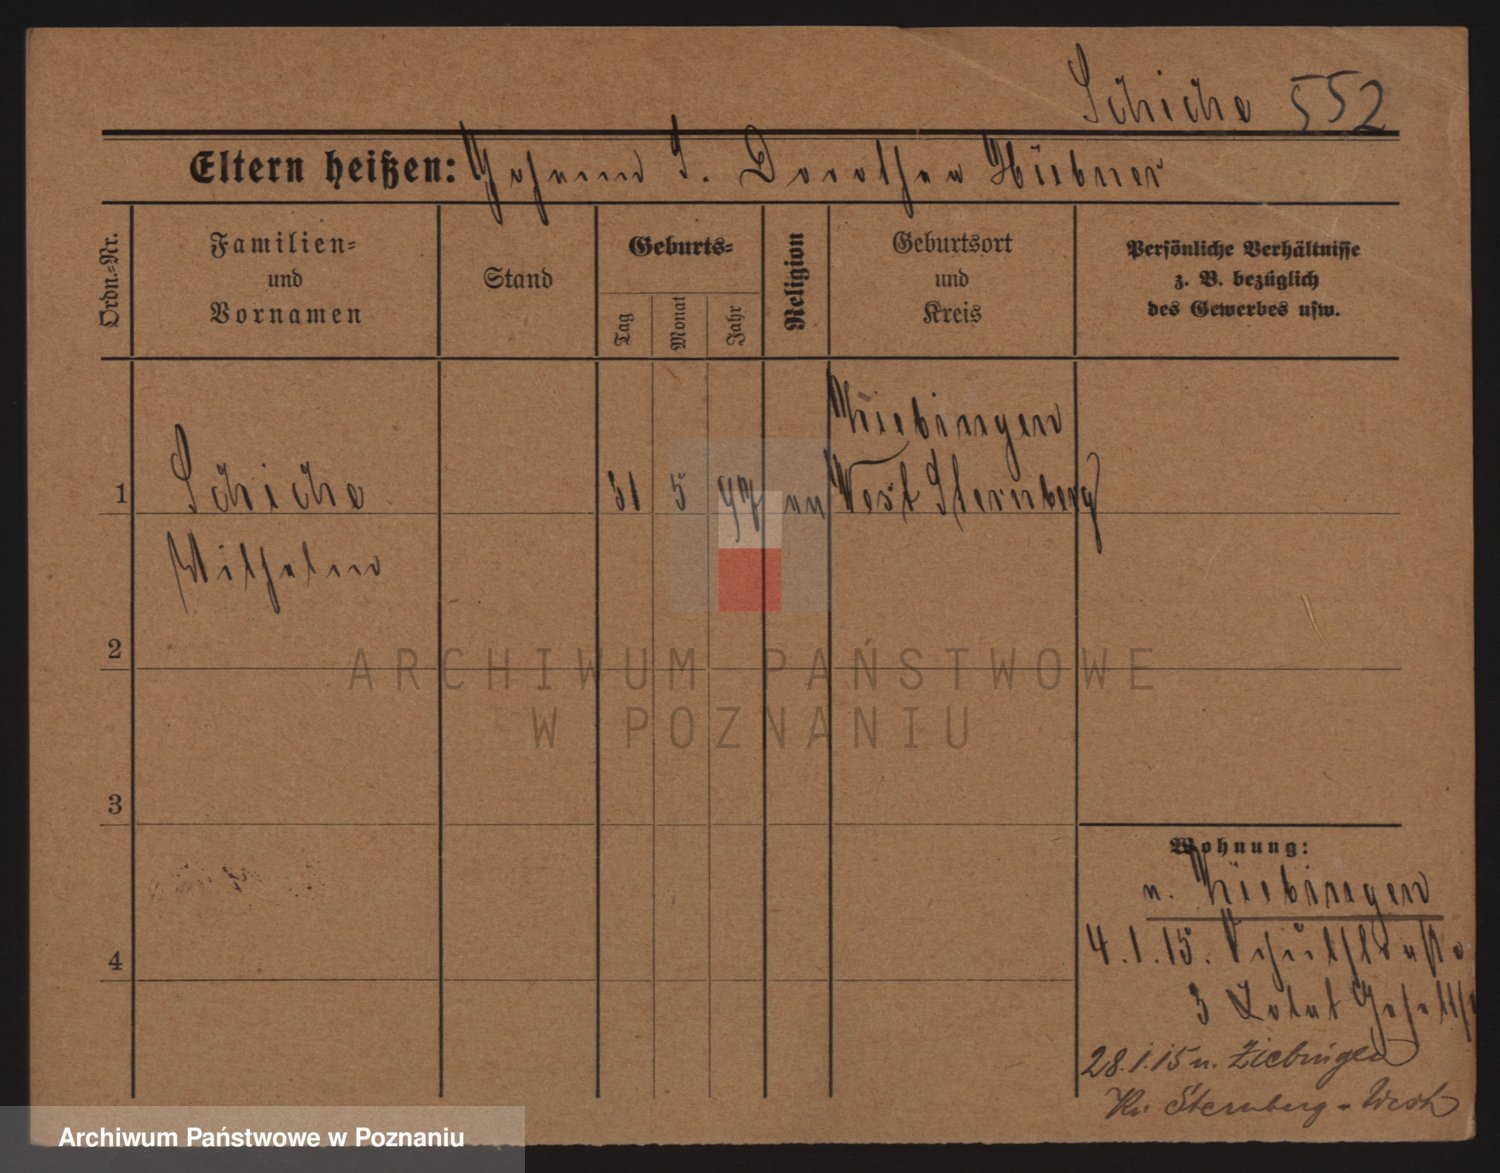 Schiche 552
Eltern heißen: Johann S. Dorothea Hübner
Ordn.=Nr.
Familien=
und
Vornamen
Stand
Geburts=
Tag
Monat
Jahr
Religion
Geburtsort
und
Kreis
Persönliche Verhältnisse
z. B. bezüglich
des Gewerbes usw.
1
Schiche
Wilhelm
31 5 97
Ziebingen
West Sternberg
2
3
4
Wohnung:
n. Ziebingen
4.1.15. Schulstraße
3
28.1.15 n. Ziebingen
Kr. Sternberg - West
ARCHIWUM PAŃSTWOWE
W POZNANIU
Archiwum Państwowe w Poznaniu